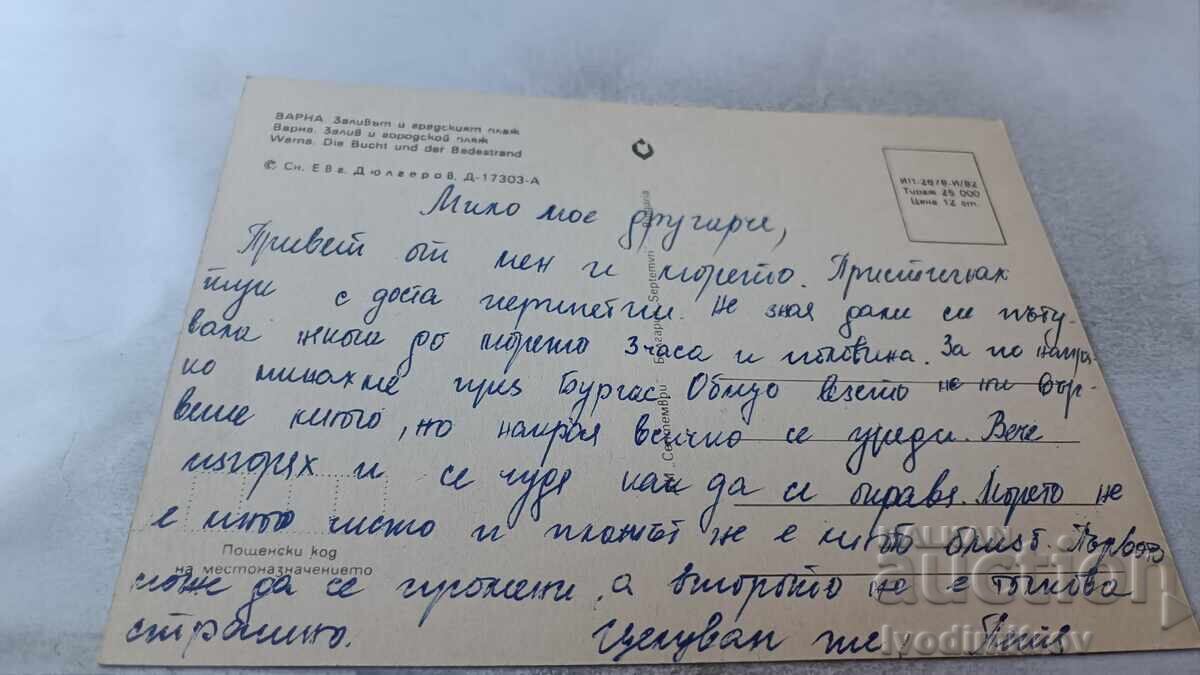 ВАРНА. Заливът и градският плаж
Варна. Залив и городской пляж
Warna. Die Bucht und der Badestrand
© Сн. Евг. Дюлгеров, Д-17303-А
ИП-2878-И/82
Тираж 25 000
Цена 12 ст.
Мило мое другарче,
Привет от мен и морето. Пристигнах
тук с доста перипетии. Не зная дали си пъту-
вала някога до морето 3 часа и половина. За по
но минахме през Бургас. Общо взето не ни вър-
веше много, но накрая всичко се уреди. Вече
изгорях и се чудя как да се оправя. Морето не
е много чисто и плажът не е близо. Първото
може да се промени, а второто не е толкова
страшно. Целувам те,
Пощенски код
на местоназначението
"Септември" България Septemvri
BALKAN
auction
IvoDimitrov